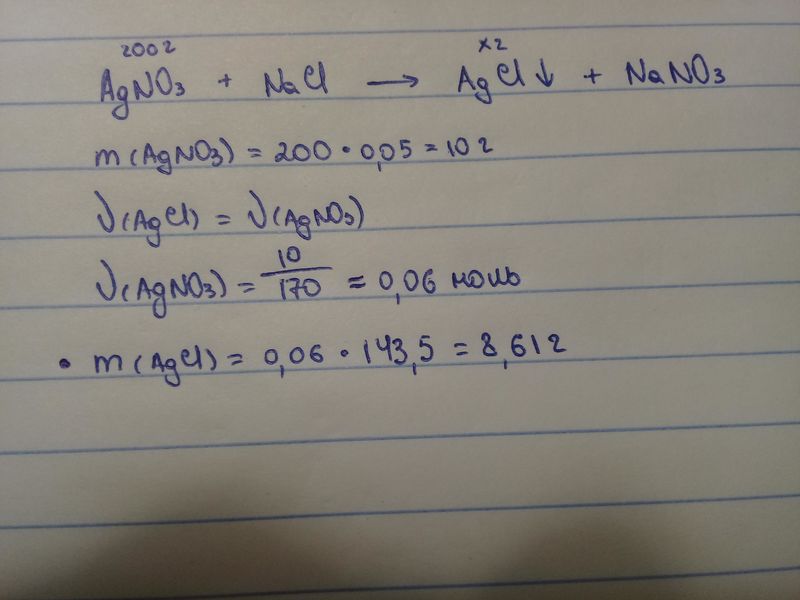 200г xг
AgNO₃ + NaCl → AgCl↓ + NaNO₃
m(AgNO₃) = 200 · 0,05 = 10г
ν(AgCl) = ν(AgNO₃)
ν(AgNO₃) = 10/170 ≈ 0,06 моль
• m(AgCl) = 0,06 · 143,5 = 8,61г